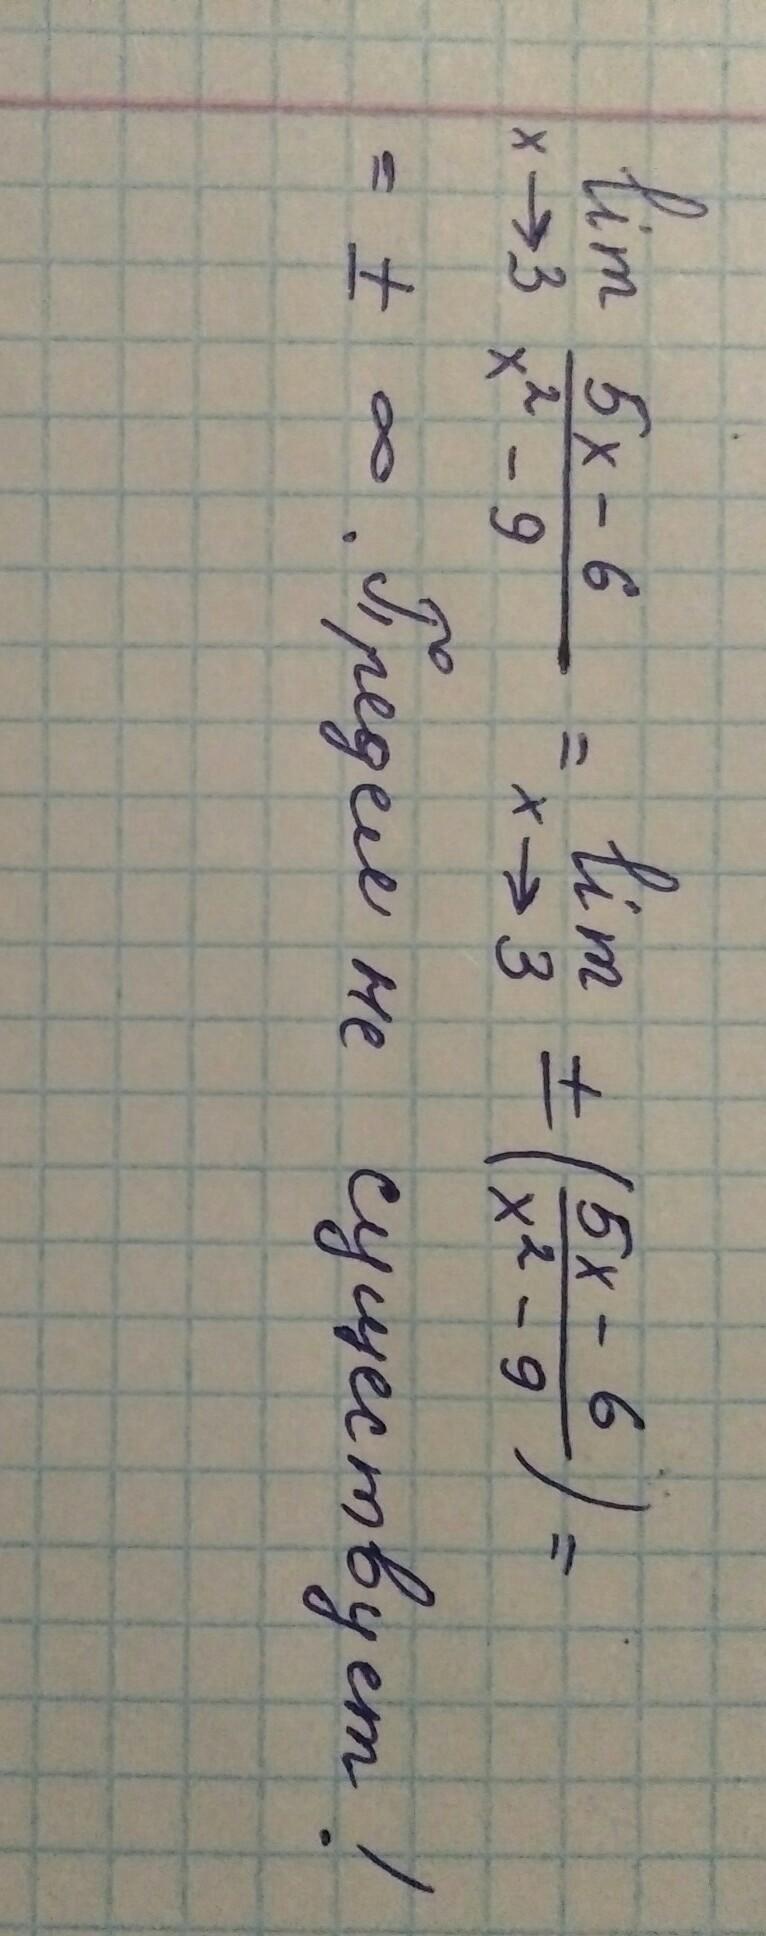 lim 5x - 6 / x² - 9 = lim ± (5x - 6 / x² - 9) =
x → 3 x → 3
= ± ∞. Предел не существует!